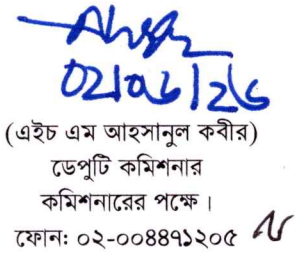 ০২/০৬/২৬
(এইচ এম আহসানুল কবীর)
ডেপুটি কমিশনার
কমিশনারের পক্ষে।
ফোন: ০২-০০৪৪৭১২০৫